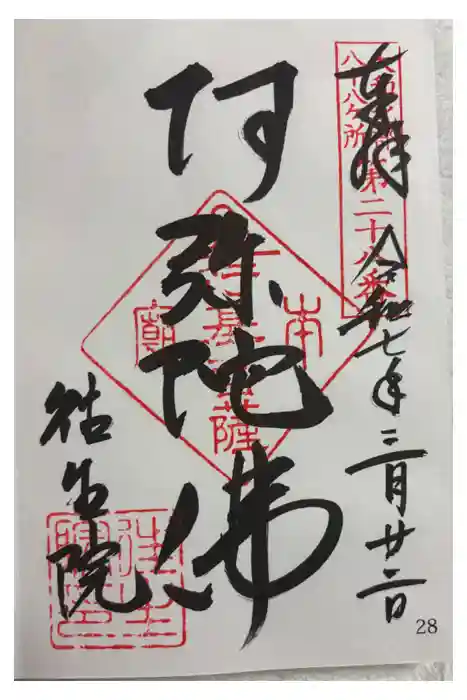 奉拝 令和七年三月廿二日
第二十八番
八十八ヶ所
阿弥陀佛
本
菩薩
廟
往生院
28